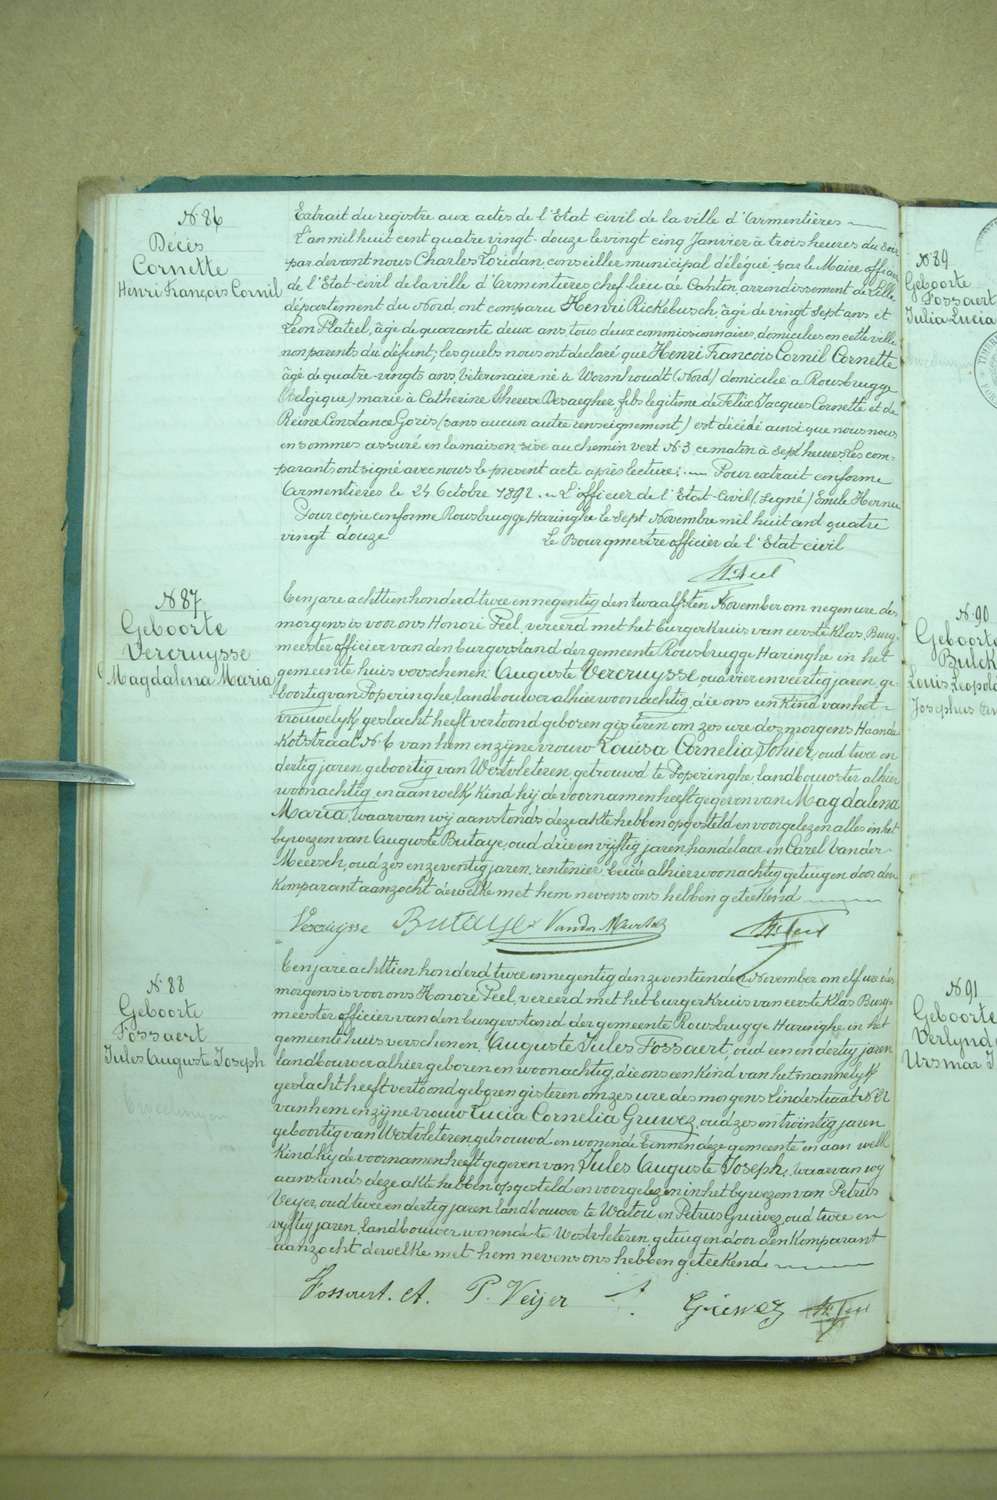 N 86
Décès
Cornette
Henri François Cornil
Extrait du registre aux actes de l'Etat civil de la ville d'Armentières
L'an mil huit cent quatre vingt-douze le vingt cinq Janvier à trois heures du Soir
par devant nous Charles Loridan, conseiller municipal délégué par le Maire officier
de l'Etat-civil de la ville d'Armentières chef lieu de Canton, arrondissement de Lille
département du Nord, ont comparu Henri Rickebusch, âgé de vingt sept ans et
Léon Plateel, âgé de quarante deux ans, tous deux commissionnaires, domiciliés en cette ville
non parents du défunt; lesquels nous ont declaré que Henri François Cornil Cornette
âgé de quatre-vingts ans, Vétérinaire né à Wormhoudt (Nord) domicilié à Rousbrugge
(Belgique) marié à Catherine Therese Desaegher, fils legitime de Felix Jacques Cornette et de
Reine Constance Goris (sans aucun autre renseignement) est décédé ainsi que nous nous
en sommes assuré en la maison, sise au chemin vert N. 3 ce matin à sept heures les com-
parants ont signé avec nous le présent acte après lecture; Pour extrait conforme
Armentières le 24 Octobre 1892. L'officier de l'Etat-Civil (signé) Emile Hernu
Pour copie conforme Rousbrugge Haringhe le Sept Novembre mil huit cent quatre
vingt douze Le Bourgmestre officier de l'Etat civil
H. Feel
N 87
Geboorte
Vercruysse
Magdalena Maria
Ten jare achttien honderd twee en negentig den twaalfsten November om negen ure des
morgens is voor ons Honoré Feel, vereerd met het burgerkruis van eerste klas, Burg-
meester officier van den burgerstand der gemeente Rousbrugge Haringhe in het
gemeente huis verschenen Auguste Vercruysse oud vier en veertig jaren, ge-
boortig van Poperinghe, landbouwer alhier woonachtig, die ons een Kind van het
vrouwelyk geslacht heeft vertoond geboren gisteren om zes ure des morgens Haande
Kotstraat N. 6 van hem en zijne vrouw Louisa Cornelia Tohier, oud twee en
dertig jaren geboortig van Westvleteren, getrouwd te Poperinghe, landbouwster alhier
woonachtig en aan welk Kind hij de voornamen heeft gegeven van Magdalena
Maria, waarvan wij aanstonds deze akte hebben opgesteld en voorgelezen alles in het
bywezen van Auguste Butaye, oud drie en vyftig jaren, handelaar en Carel Vander
Meersch, oud zes en zeventig jaren, rentenier, beide alhier woonachtig getuigen door den
komparant aanzocht dewelke met hem nevens ons hebben geteekend
Vercruysse Butaye Vander Meersch H. Feel
N 88
Geboorte
Fossaert
Jules Auguste Joseph
Ten jare achttien honderd twee en negentig den zeventienden November om elf ure des
morgens is voor ons Honoré Feel, vereerd met het burgerkruis van eerste klas Burg-
meester officier van den burgerstand der gemeente Rousbrugge Haringhe, in het
gemeente huis verschenen, Auguste Jules Fossaert, oud een en dertig jaren
landbouwer alhier geboren en woonachtig, die ons een Kind van het mannelyk
geslacht heeft vertoond geboren gisteren om zes ure des morgens Lindestraat N 22
van hem en zijne vrouw Lucia Cornelia Gruwez, oud zes en twintig jaren
geboortig van Westvleteren getrouwd en wonende binnen deze gemeente en aan welk
Kind hij de voornamen heeft gegeven van Jules Auguste Joseph, waarvan wy
aanstonds deze akte hebben opgesteld en voorgelezen in het bywezen van Petrus
Veijer, oud twee en dertig jaren landbouwer te Watou en Petrus Gruwez, oud twee en
vyftig jaren, landbouwer wonende te Westvleteren getuigen door den komparant
aanzocht dewelke met hem nevens ons hebben geteekend.
Fossaert. A. P. Veijer Gruwez H. Feel
N 89
Geboorte
Fossaert
Julia Lucia
N 90
Geboorte
Bulck
Louis Leopold
Josephus
N 91
Geboorte
Verlynd
Ursmar J